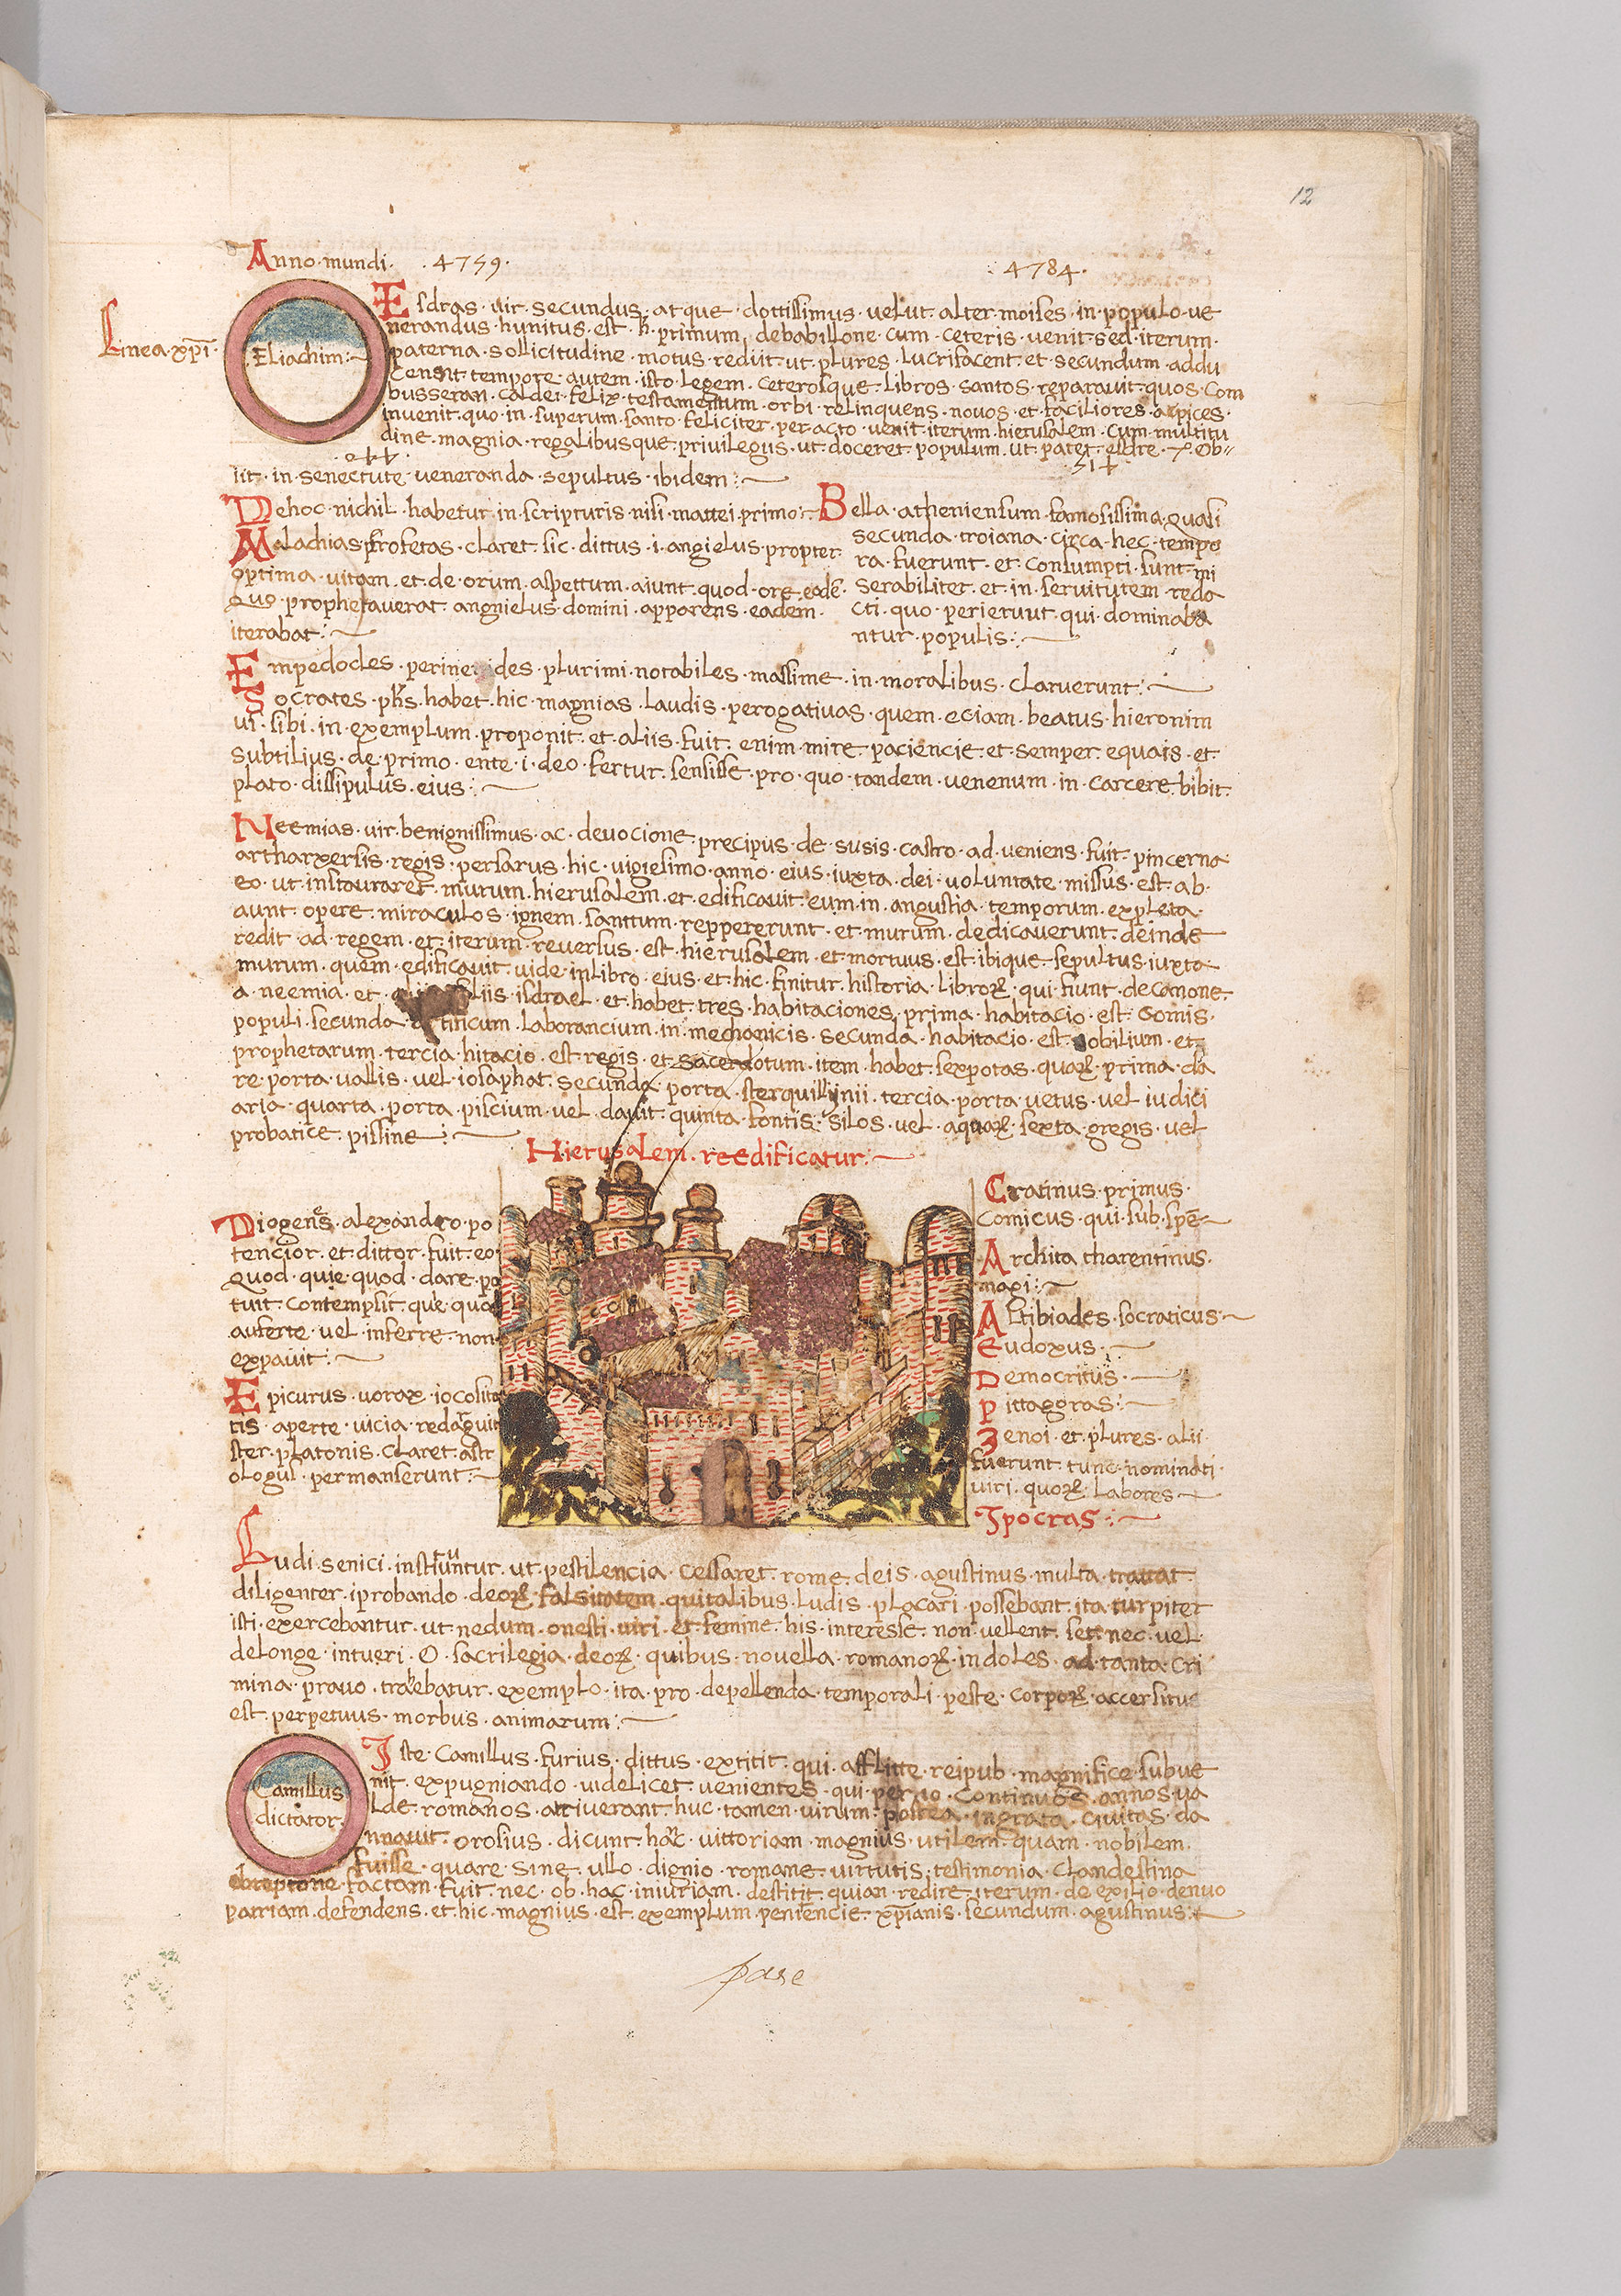 12
Anno · mundi · · 4759 ·
· 4784 ·
Linea · xpi ·
Eliachim :~
Esdras · vir · secundus · atque · dottissimus · velut · alter · moises · in · populo · ve
nerandus · hunitus · est · h · primum · debabillone · cum · ceteris · venit · sed · iterum ·
paterna · sollicitudine · motus · rediit · ut · plures · lucrifacent · et · secundum · addu
censit · tempore · autem · isto · legem · ceterosque · libros · santos · reparavit · quos · com
busseran · caldei · felix · testamentum · orbi · relinquens · novos · et · faciliores · apices ·
invenit · quo · in · superum · santo · feliciter · peracto · venit · iterum · hierusalem · cum · multitu
dine · magnia · regalibusque · privilegiis · ut · doceret · populum · ut · patet · esdre · 7 · Ob
iit · in · senectute · veneranda · sepultus · ibidem :~
Dehoc · nichil · habetur · in · scripturis · nisi · mattei · primo :~
Malachias · profetas · claret · sic · dittus · i · angielus · propter ·
optima · vitam · et · de · orum · aspettum · aiunt · quod · ore · eade ·
Quo · prophetaverat · angnielus · domini · apparens · eadem ·
iterabat :~
Bella · atheniensum · famosissima · quasi
secunda · troiana · circa · hec · tempo
ra · fuerunt · et · consumpti · sunt · mi
serabiliter · et · in · servitutem · reda
cti · quo · perieruut · qui · dominaba
ntur · populis :~
Empedocles · des · plurimi · notabiles · massime · in · moralibus · claruerunt :~
Socrates · phs · habet · hic · magnias · laudis · perogativas · quem · eciam · beatus · hieronim
ui · sibi · in · exemplum · proponit · et · aliis · fuit · enim · mire · paciencie · et · semper · equais · et ·
subtilius · de · primo · ente · i · deo · fertur · sensisse · pro · quo · tandem · venenum · in · carcere · bibit ·
plato · dissipulus · eius :~
Neemias · vir · benignissimus · ac · devocione · precipus · de · susis · castro · ad · veniens · fuit · pincerna ·
artharxersis · regis · persarus · hic · vigiesimo · anno · eius · iuxta · dei · voluntate · missus · est · ab ·
eo · ut · instauraret · murum · hierusalem · et · edificavit · eum · in · angustia · temporum · expleta ·
aunt · opere · miraculos · ignem · santtum · reppererunt · et · murum · dedicaverunt · deinde
redit · ad · regem · et · iterum · reversus · est · hierusalem · et · mortuus · est · ibique · sepultus · iuxta
murum · quem · edificavit · vide · inlibro · eius · et · hic · finitur · historia · libroꝝ · qui · fiunt · decanone ·
a · neemia · et · liis · isdrael · et · habet · tres · habitaciones · prima · habitacio · est · comis ·
populi · secunda · tificum · laborancium · in · mechanicis · secunda · habitacio · est · nobilium · et ·
prophetarum · tercia · hitacio · est · regis · et · sacerdotum · item · habet · sexpotas · quaꝝ · prima · da
re · porta · vallis · vel · iosaphat · secunda · porta · sterquillijnii · tercia · porta · vetus · vel · iudici
aria · quarta · porta · piscium · vel · davit · quinta · fontis · silos · vel · aquaꝝ · sexta · gregis · vel
probatice · pissine :~
Hierusalem · reedificatur :~
Diogenes · alexandro · po
tencior · et · dittor · fuit · eo
Quod · quie · quod · dare · po
tuit · contemplit · que · quo
auferre · vel · inferre · non
expavit :~
Epicurus · vorax · iocosita
tis · aperte · vicia · redarguit
ster · platonis · claret · astr
ologul · permanserunt :~
Cratinus · primus ·
comicus · qui · sub · spe~
Archita tharentinus ·
magi :~
Altibiades · socraticus ~
Eudoxus ·~
Democritus ·~
Pittagoras :~
Zenoi · et · plures · alii ·
fuerunt · tunc · nominati ·
viri · quoꝝ · labores~
Ipocras :~
Ludi · senici · instituuntur · ut · pestilencia · cessaret · rome · deis · agustinus · multa · trattat
diligenter · iprobando · deoꝝ · falsitatem · quitalibus · ludis · placari · possebant · ita · turpiter
isti · exercebantur · ut · nedum · onesti · viri · et · femine · his · interesse · non · vellent · set · nec · vel ·
delonge · intueri · O · sacrilegia · deoꝝ · quibus · novella · romanoꝝ · indoles · ad · tanta · cri
mina · pravo · trahebatur · exemplo · ita · pro · depellenda · temporali · peste · corpoꝝ · accersitus
est · perpetuus · morbus · animarum :~
Camillus
dictator ·
Iste · Camillus · furius · dittus · extitit · qui · afflitte · reipub · magnifice · subve
nit · expugniando · videlicet · venientes · qui · per · 10 · continuos · annos · va
lde · romanos · attriverant · huc · tamen · virum · postea · ingrata · civitas · da
nnavit · orosius · dicunt · hanc · vittoriam · magnius · utilem · quam · nobilem ·
fuisse · quare · sine · ullo · dignio · romane · virtutis · testimonia · clandestina
obreptone · factam · fuit · nec · ob · hac · iniuriam · destitit · quian · redire · iterum · de · exilio · denuo
patriam · defendens · et · hic · magnius · est · exemplum · penitencie · xpianis · secundum · agustinus :~